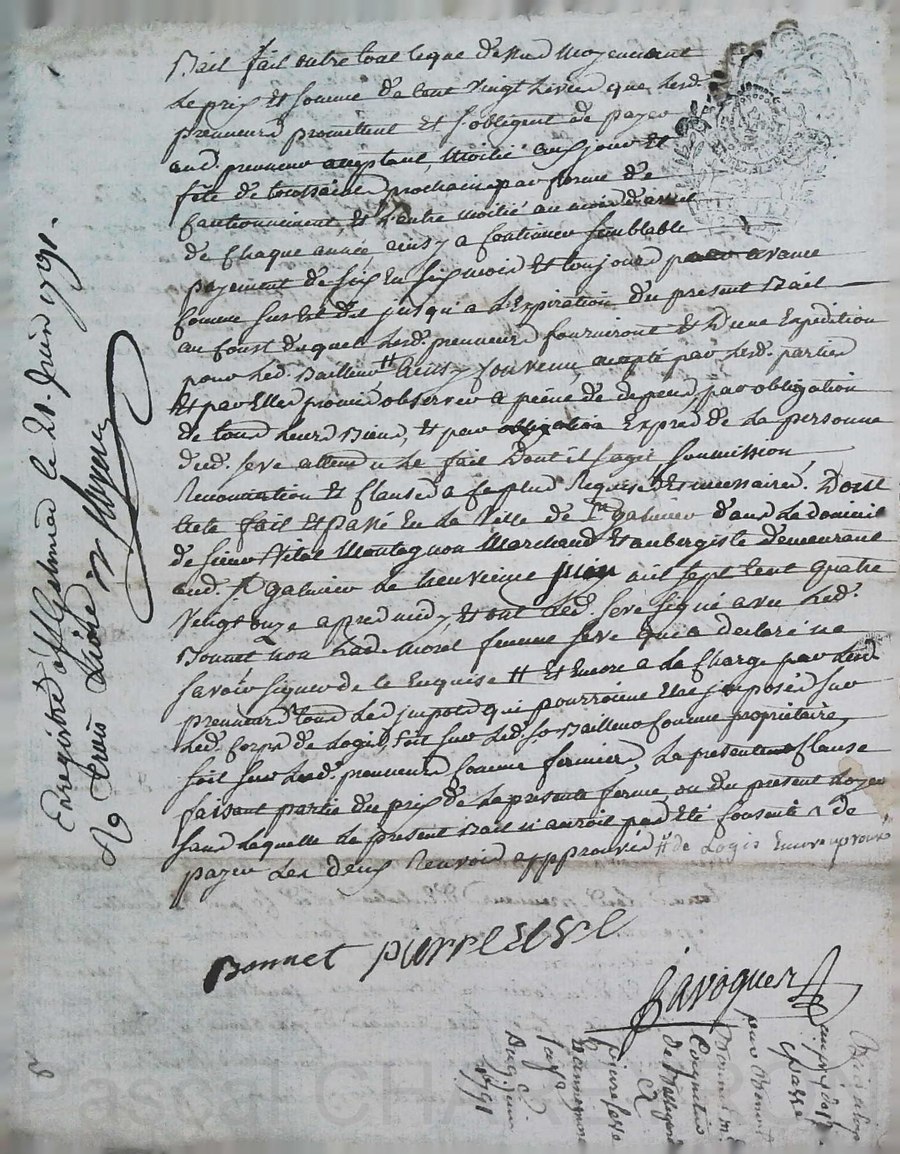 Bail fait outre tout ce que dessus moyennant
Le prix et somme de cent vingt Livres que lesd.
preneurs promettent et s'obligent de payer
aud. preneur acceptant, moitié aux jour et
fête de toussaints prochain par forme de
Cautionnement, et L'autre moitié au mois d'avril
de Chaque année, ainsy a Continuer semblable
payement de six en six mois et toujours par avance
Comme sus est dit jusqu'a L'Expiration du présent Bail
au Coust duquel Lesd. preneurs fourniront et d'une Expédition
pour Led. Bailleur # Ainsy Convenu, accepté par Lesd. parties
Et par Elles promis observer a peine de depens, par obligation
de tous Leurs Biens, et par obligation Expresse de La personne
dud. seve attendu Le fait Dont il s'agit soumission
Renonciation et Clauses a ce plus Requises et necessaires. Dont
Acte fait et passé En La Ville de St. galmier dans Le domicile
de sieur Vital Montagnon Marchand et aubergiste demeurant
aud. St galmier Le neuvieme Juin mil sept cent quatre
Vingt onze apres midy, et ont Led. seve signé avec Led.
Bonnet non Lad. morel femme seve qui a declaré ne
savoir signer de ce Enquise # et Encore a La Charge par Lesd.
preneurs tous Les impots qui pourroient etre imposés sur
Led. Corps de Logis, soit sur Led. sr Bailleur comme propriétaire,
soit sur Lesd. preneurs Comme fermiers, La presente Clause
faisant partie du prix de La presente ferme, ou du present Loyer
sans Laquelle Le present Bail n'auroit pas été Consenti & de
payer Les deux Renvois approuvés # de Logis Encore approuvé
Bonnet pierre seve
Ravoguer
Enregistré a St Galmier le 21. Juin 1791.
Rg trois Livres
pour
passé
juin
1791